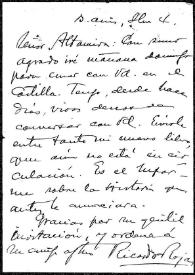 B. aires, Jlio 4.
Señor Altamira: Con sumo
agrado iré mañana domingo
para cenar con Vd. en el
Castilla. Tengo, desde hace
días, vivos deseos de
conversar con Vd. Envíole
entre tanto mi nuevo libro,
que aun no está en cir-
culación. Es el Infor-
me sobre la historia que
ante le anunciara.
Gracias por su gentil
invitación, y ordene á
su amg. affmo Ricardo Rojas